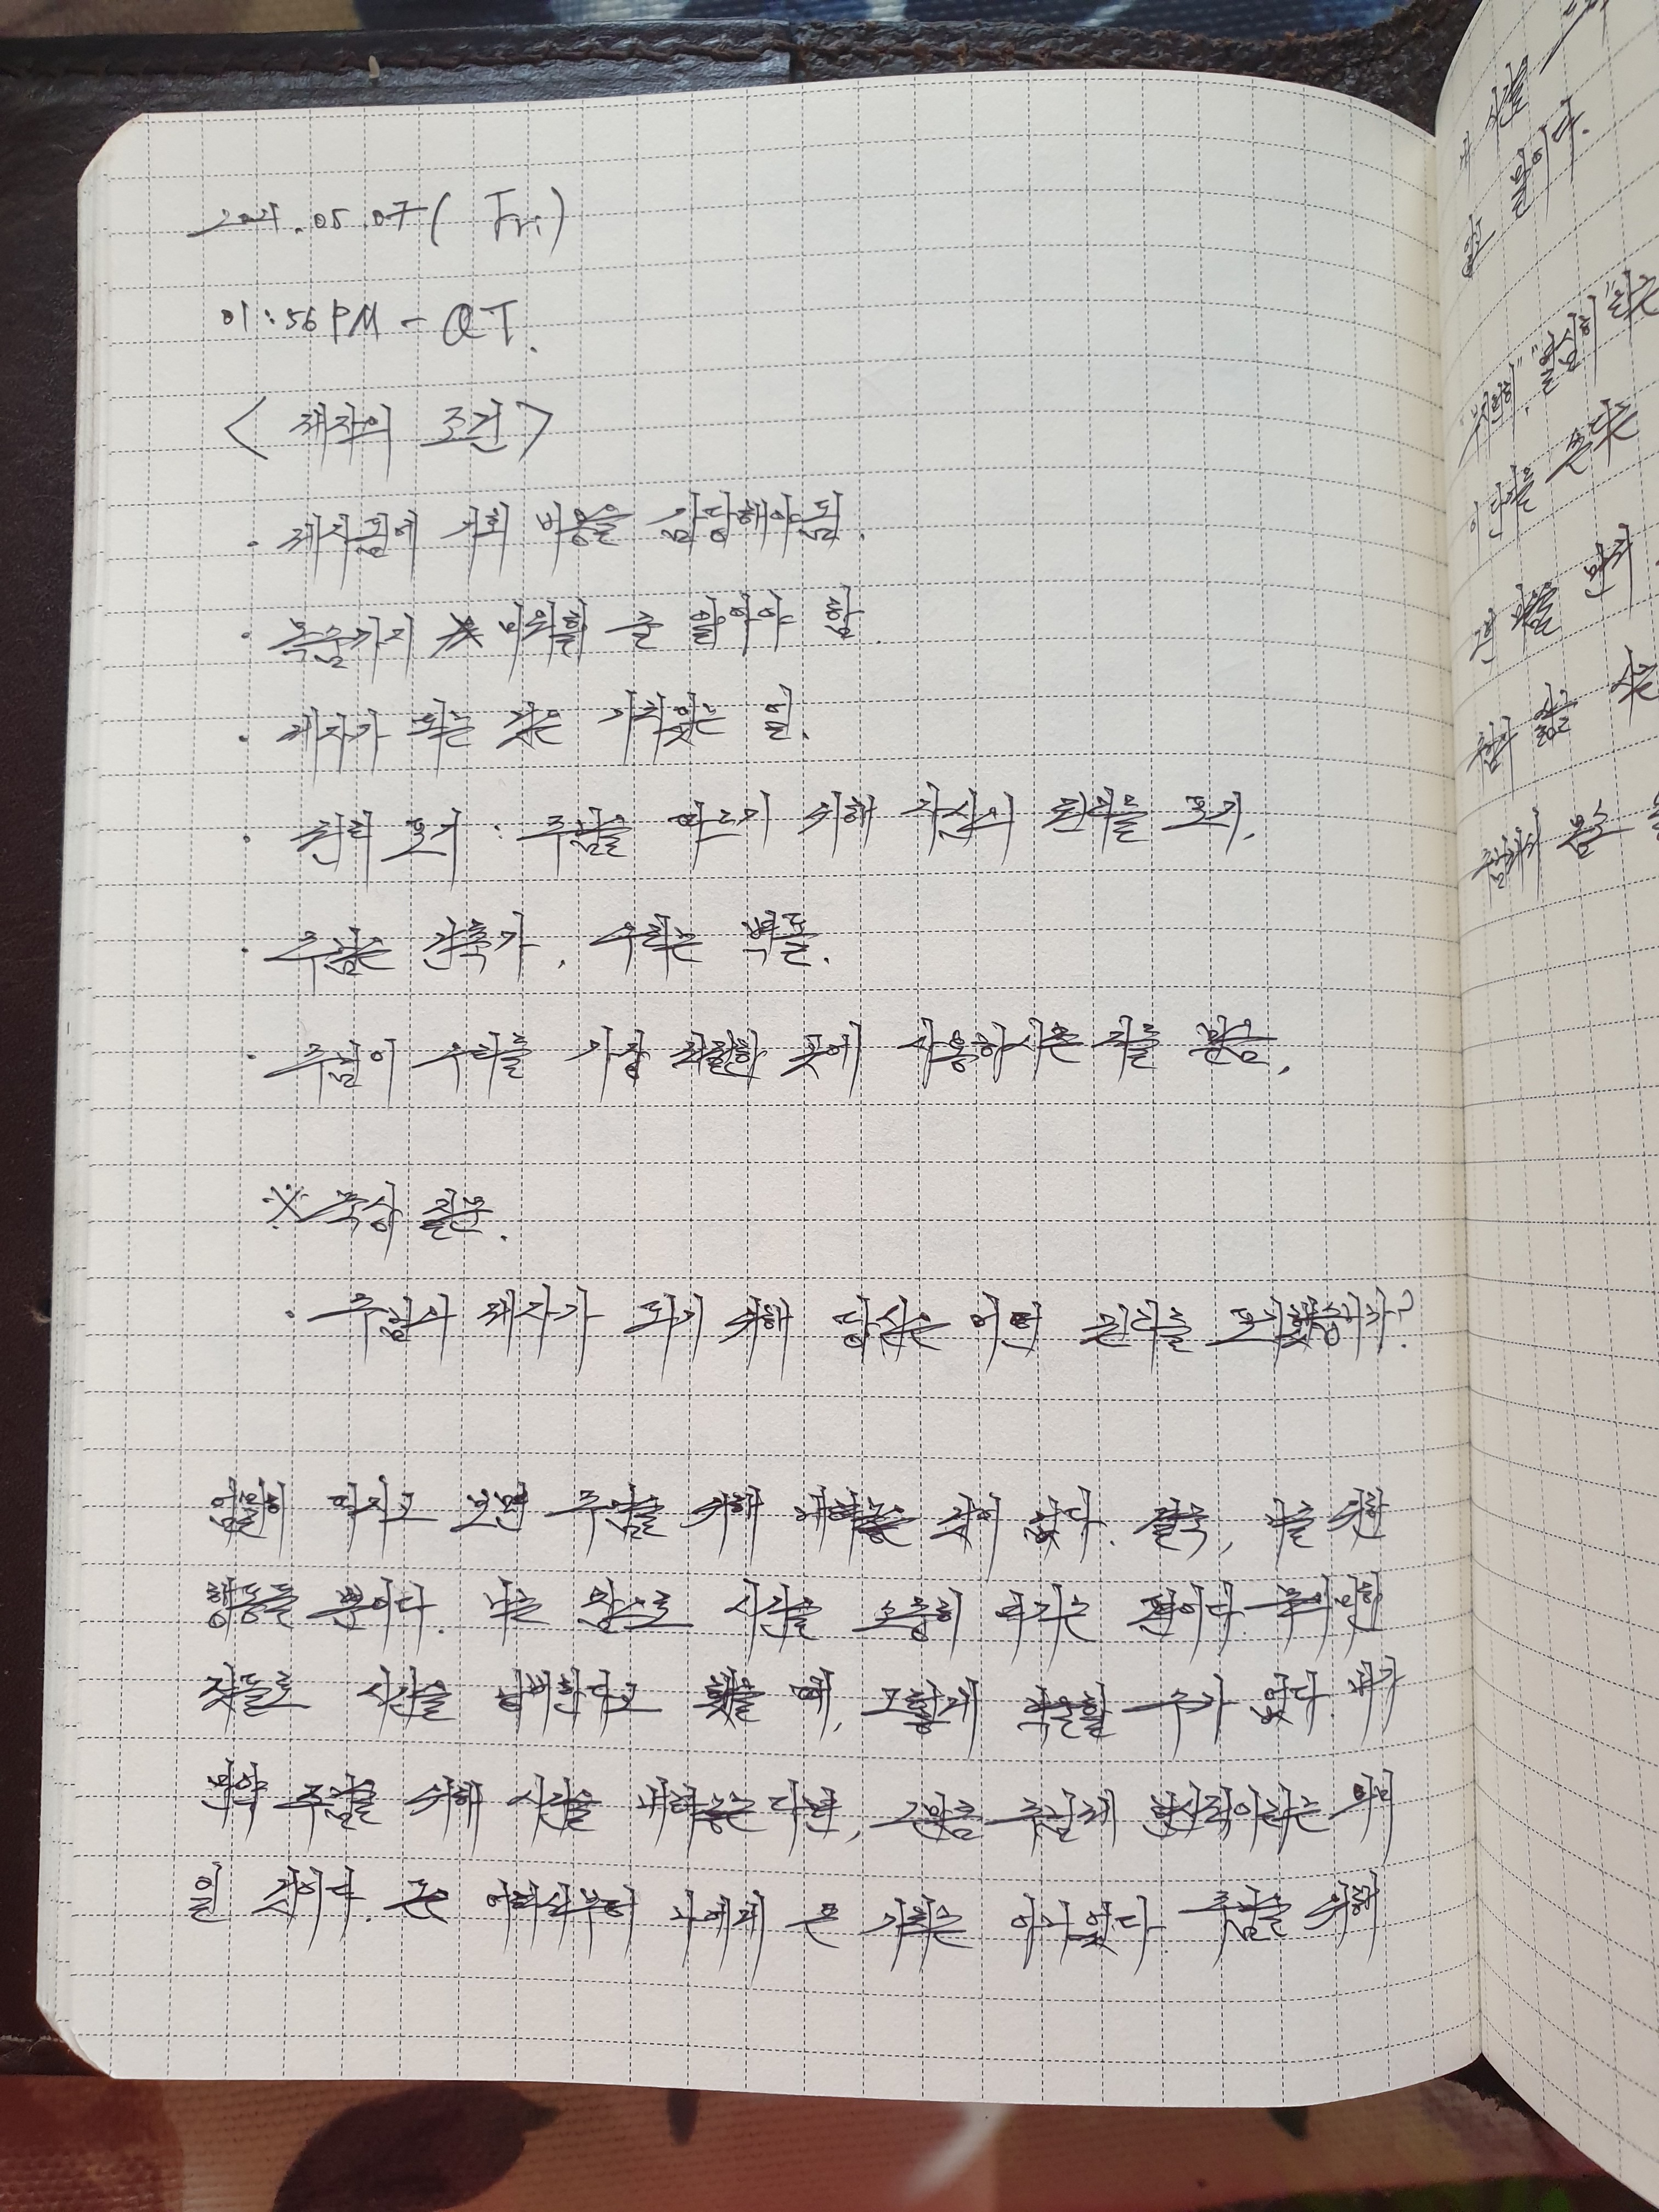 2021.05.07 (Fri)
01:56PM - QT.
< 제자의 조건 >
· 제자됨에 기회 비용을 감당해야 됨.
· 목숨까지 미워할 줄 알아야 함.
· 제자가 되는 것은 가치있는 일.
· 권리 포기 : 주님을 따르기 위해 자신의 권리를 포기.
· 주님은 건축가, 우리는 벽돌.
· 주님이 우리를 가장 적절한 곳에 사용하시는 것을 믿음.
※ 묵상 질문.
· 주님의 제자가 되기 위해 당신은 어떤 권리를 포기했습니까?
엄밀히 따지고 보면 주님을 위해 내려놓은 것이 없다. 결국, 나를 위한
행동들 뿐이다. 나는 참으로 시간을 소중히 여기는 편이다. 무의미한
것들로 시간을 낭비한다고 했을 때, 그렇게 억울할 수가 없다. 내가
만약 주님을 위해 시간을 내려놓는다면, 그만큼 주님께 헌신적이라는 의미
일 것이다. 돈은 어려서부터 나에게 큰 가치는 아니었다. 주님을 위해
시간을
일이다.
"열심히"라는
이 단어를 쓴다는